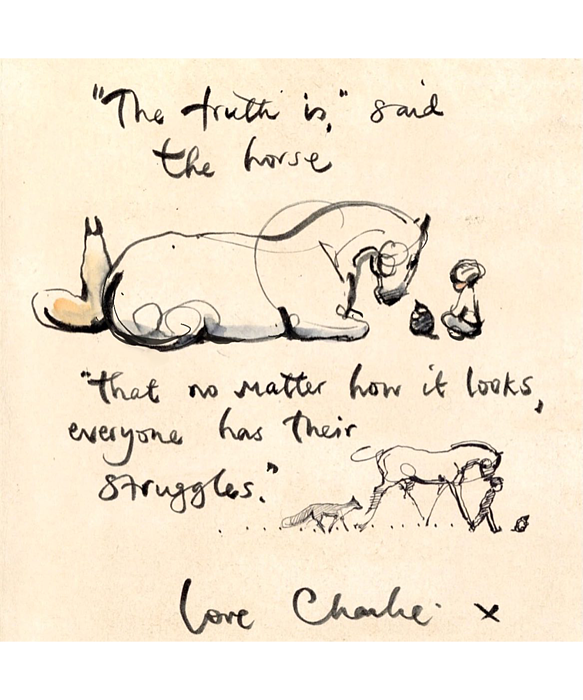 "The truth is," said
the horse
"that no matter how it looks,
everyone has their
struggles."
love Charlie. x